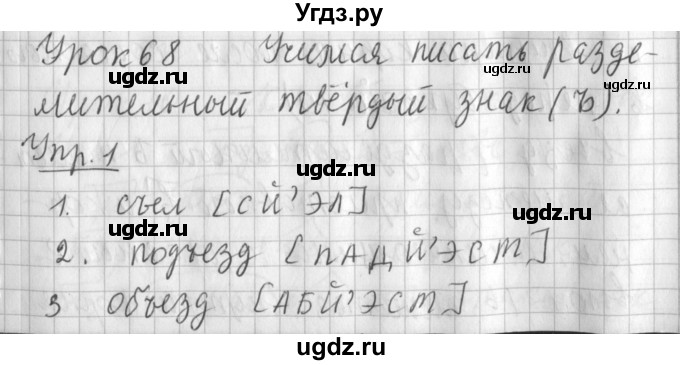 Угдз.ру
Урок 68 Учимся писать разде-
лительный твёрдый знак (ъ).
Упр. 1
1. съел [СЙ'ЭЛ]
2. подъезд [ПАДЙ'ЭСТ]
3 объезд [АБЙ'ЭСТ]
ugdz.ru
ugdz.ru
ugdz.ru
ugdz.ru
ugdz.ru
ugdz.ru
ugdz.ru
ugdz.ru